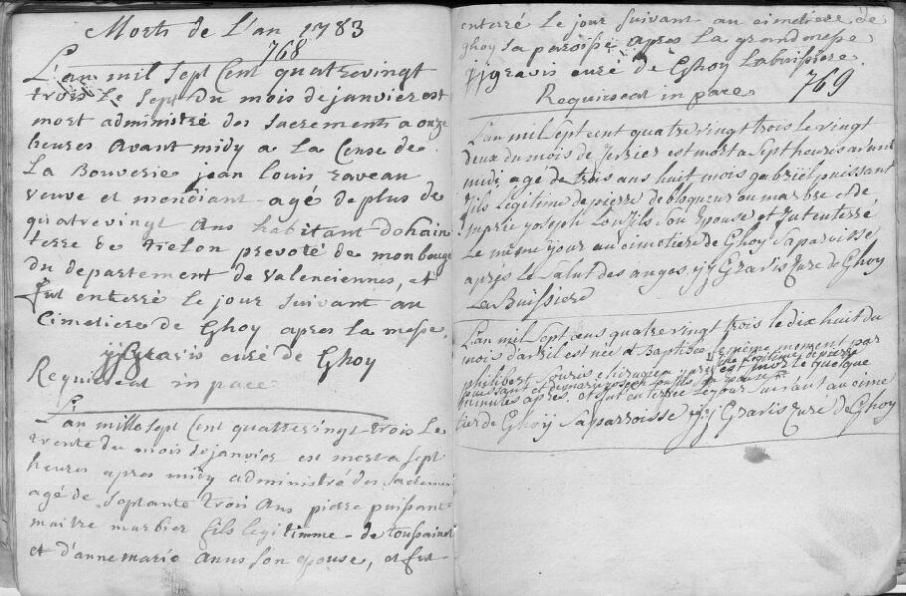 Morts de L'an 1783
768
L'an mil sept Cent quatrevingt
trois Le sept du mois de janvier est
mort administré des sacrements a onze
heures avant midy a La Cense de
La Bouverie jean Louis raveau
veuve et mendiant agé de plus de
quatrevingt ans habitant dohain
terre de trelon prevoté de
du departement de valenciennes, et
fut enterré Le jour suivant au
Cimetiere de Ghoy apres La messe.
jjGravis curé de Ghoy
Requiescat in pace
L'an mille sept Cent quattrevingt-trois Le
trente du mois de janvier est mort a sept
heures apres midy administré des sacremens
agé de septante trois ans piere puissant
maitre marbier fils legitimme de toussaint
et d'anne marie anus son epouse, et fut
enterré Le jour suivant au cimetiere de
ghoy sa paroisse apres La grandmesse
jjgravis curé de Ghoy Labuissiere.
Requiescat in pace 769
L'an mil sept cent quatre vingt trois le vingt
deux du mois de fevrier est mort a sept heures avant
midi agé de trois ans huit mois gabriel puissant
fils légitime de pierre debloqueur au marbre et de
joseph son epouse et fut enterré
Le même jour au cimetiere de Ghoy sa paroisse
apres le salut des anges. jj Gravis Curé de Ghoy
La Buissiere
L'an mil sept cens quatre vingt trois le dix huit du
mois d'avril est née et Baptisée le même moment par
philibert chirurgien juré est mort quelque
puissant et de marie joseph son epouse
minutes apres. et fut enterrée le jour suivant au cime
tier de Ghoy sa parroisse jj Gravis Curé de Ghoy